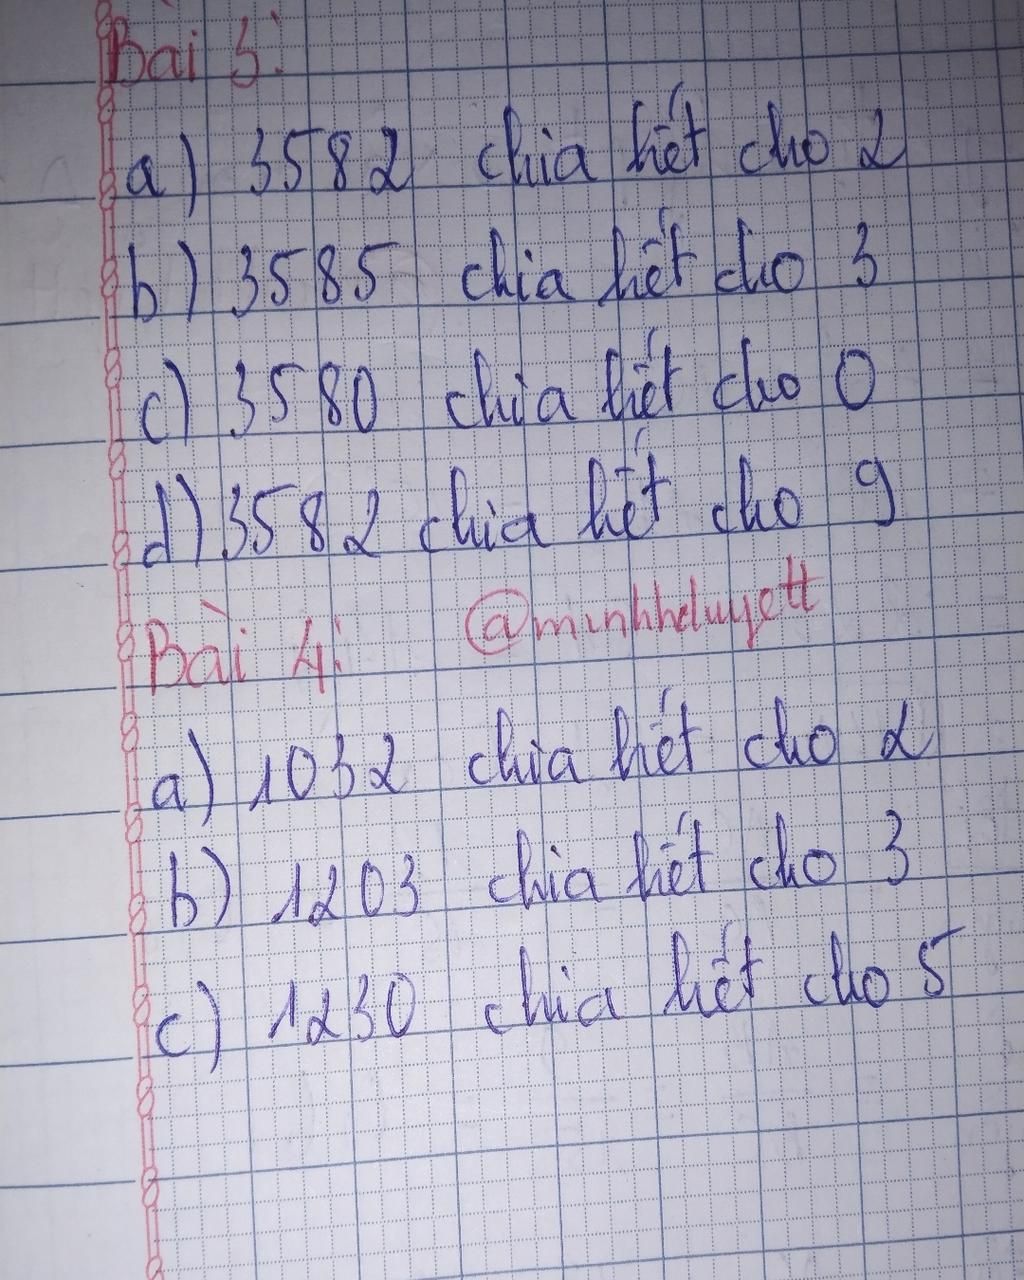 Bài 3:
a) 3582 chia hết cho 2
b) 3585 chia hết cho 3
c) 3580 chia hết cho 0
d) 3582 chia hết cho 9
Bài 4: @minhhdluyett
a) 1032 chia hết cho 2
b) 1203 chia hết cho 3
c) 1230 chia hết cho 5